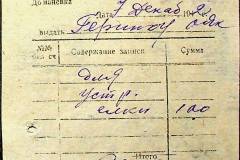 Доманевка
Дата 7 Декаб 194
выдать Герингу
№№ Содержание записи Сумма
для
устр.
елки 100
Итого